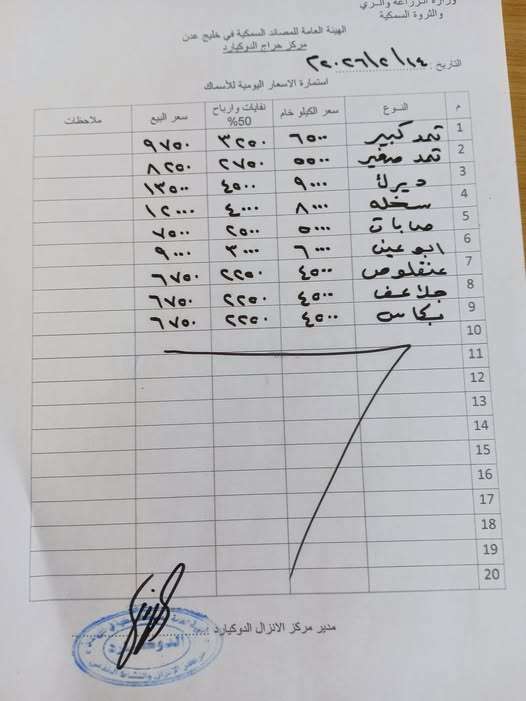 وزارة الزراعة والري
والثروة السمكية
الهيئة العامة للمصائد السمكية في خليج عدن
مركز حراج الدوكيارد
التاريخ: ٢٠٢٦/٢/١٤م
استمارة الاسعار اليومية للأسماك
م النوع سعر الكيلو خام نفايات وارباح 50% سعر البيع ملاحظات
1 ثمد كبير ٦٥٠٠ ٣٢٥٠ ٩٧٥٠
2 ثمد صغير ٥٥٠٠ ٢٧٥٠ ٨٢٥٠
3 ديرك ٩٠٠٠ ٤٥٠٠ ١٣٥٠٠
4 سخله ٨٠٠٠ ٤٠٠٠ ١٢٠٠٠
5 ٥٠٠٠ ٢٥٠٠ ٧٥٠٠
6 ابو عين ٦٠٠٠ ٣٠٠٠ ٩٠٠٠
7 عنفلوص ٤٥٠٠ ٢٢٥٠ ٦٧٥٠
8 ٤٥٠٠ ٢٢٥٠ ٦٧٥٠
9 ٤٥٠٠ ٢٢٥٠ ٦٧٥٠
10
11
12
13
14
15
16
17
18
19
20
مدير مركز الانزال الدوكيارد
الدوكيارد